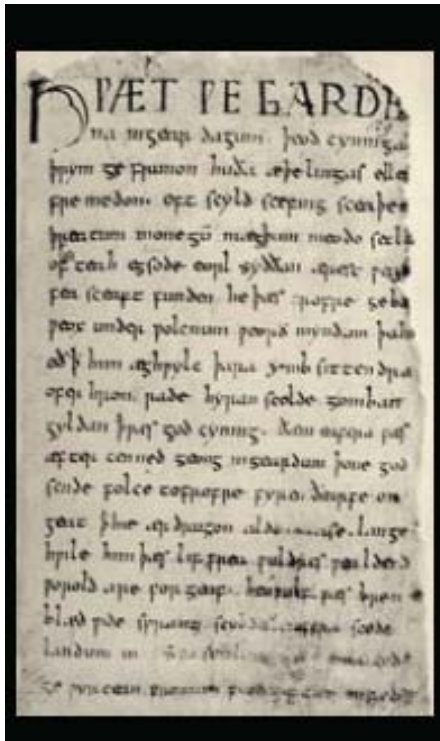 HǷÆT ǷE GARDE
na ingear dagum. þeod cyninga
þrym ge frunon huða æþelingas elle
fre medon. oft scyld scefing sceaþe
þreatum monegū mægþum meodo setla
of teah egsode eorl syððan ærest ƿearð
fea sceaft funden he þæs frofre geba
ƿeox under ƿolcnum ƿeorð myndum þah
oð ꝥ him æghƿylc þara ymb sittendra
ofer hron rade hyran scolde gomban
gyldan ꝥ ƿæs god cyning. ðæm eafera ƿæs
æfter cenned geong ingeardum þone god
sende folce tofrofre fyren ðearfe on
geat ꝥ hie ær drugon aldor ase. lange
hƿile him þæs lif frea ƿuldres ƿealdend
ƿorold are for geaf. beoƿulf ƿæs breme
blæd ƿide sprang scyldes eafera scede
landum in
ge ƿyrcean fromum feoh giftum